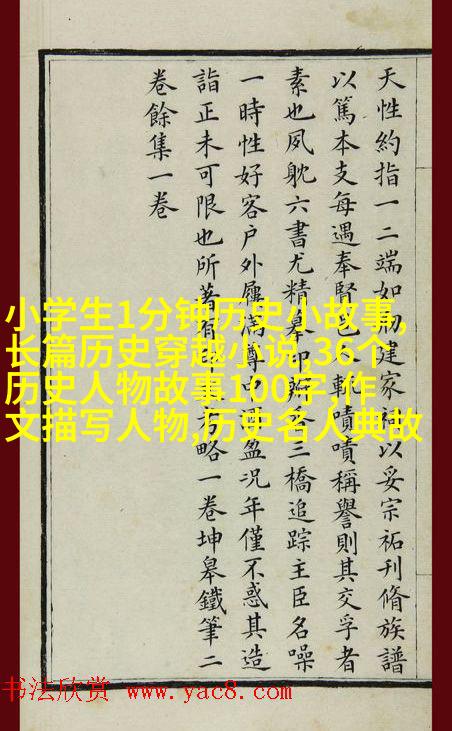 天性約指一二端如建家以妥宗祏刊脩族譜
以篤本支每遇奉腎邑嘖嘖稱譽則其交孚者
素也夙躭六書尤精摹印三橋追踪主臣名噪
一時性好客户外屨滿尊中盈况年僅不惑其造
詣正未可限也所著有方略一卷坤皋鐵筆二
卷餘集一卷
小学生1分钟历史小故事,
长篇历史穿越小说,36个
历史人物故事100字,作
文描写人物,历史名人典故
书法欣赏 www.yac8.com